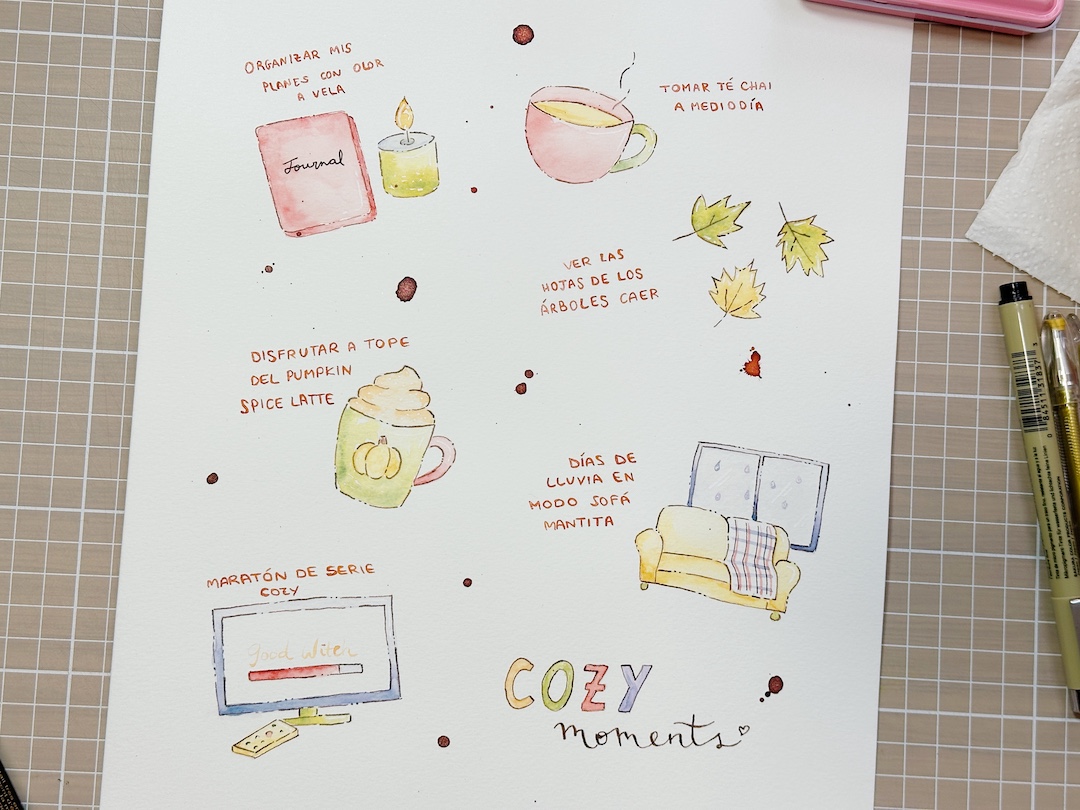 ORGANIZAR MIS
PLANES CON OLOR
A VELA
Journal
TOMAR TÉ CHAI
A MEDIODÍA
VER LAS
HOJAS DE LOS
ÁRBOLES CAER
DISFRUTAR A TOPE
DEL PUMPKIN
SPICE LATTE
DÍAS DE
LLUVIA EN
MODO SOFÁ
MANTITA
MARATÓN DE SERIE
COZY
Good Witch
COZY
moments